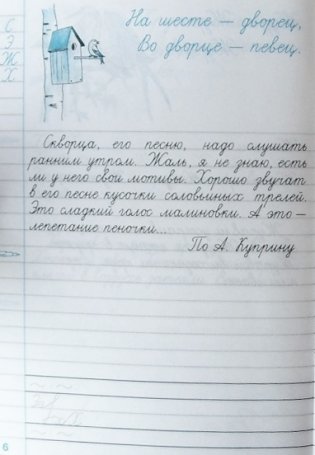 На шесте — дворец,
Во дворце — певец.
С
Э
Ж
Х
Скворца, его песню, надо слушать
ранним утром. Жаль, я не знаю, есть
ли у него свои мотивы. Хорошо звучат
в его песне кусочки соловьиных трелей.
Это сладкий голос малиновки. А это —
лепетание пеночки...
По А. Куприну
6